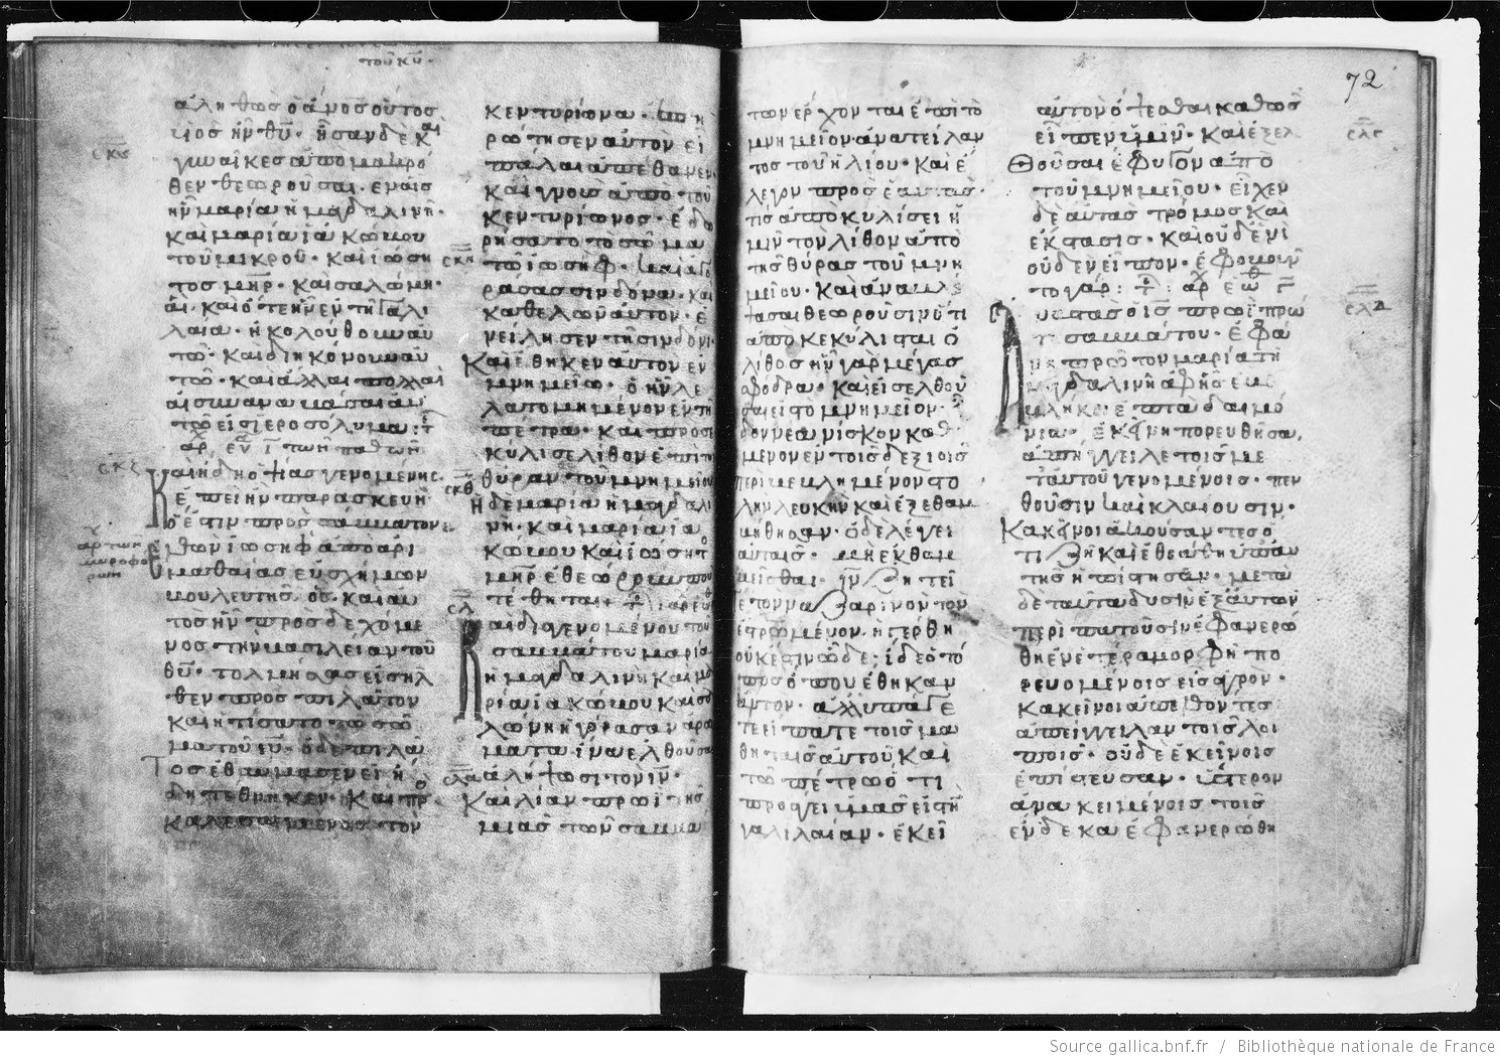 τοῦ κυ̅.
ἀληθῶσ ὁ ἄνοσ οὗτοσ
υἱοσ ἦν θυ̅. ἦσαν δὲ κ
σκ̅ϛ
γυναῖκεσ ἀπο μακρο
θεν θεωροῦσαι. ἐν αἷσ
ἦν μαρία ἡ μαγδαλινὴ.
καὶ μαρία ἰακώβου
τοῦ μικροῦ. καὶ ἰωσῆ
τοσ μη̅ρ. καὶ σαλώμη.
αἱ καὶ ὅτε ἦν ἐν τῆ γαλι
λαία. ἠκολούθουν αὐ
τῶ. καὶ διηκόνουν αὐ
τῶ. καὶ ἄλλαι πολλαὶ
αἱ συναναβᾶσαι αὐ
τῶ εἰσ ἱεροσόλυμα:
σκ̅ζ
Καὶ ἤδη ὀψίασ γενομένησ
ἐπεὶ ἦν παρασκευὴ
ὅ ἐστιν πρὸσ σάββατον
ἐλθὼν ἰωσὴφ ἀπὸ ἀρι
μαθαίασ εὐσχήμων
βουλευτὴσ. ὃσ καὶ αὐ
τὸσ ἦν προσδεχόμε
νοσ τὴν βασιλείαν τοῦ
θυ̅. τολμήσασ εἰσῆλ
θεν πρὸσ πιλᾶτον
καὶ ἠτίσατο τὸ σῶ
μα τοῦ ιυ̅. ὁ δὲ πιλᾶ
τοσ ἐθαύμασεν εἰ ἤ
δη τέθνηκεν. καὶ προ
καλεσάμενοσ τὸν
κεντυρίωνα. ἐπη
ρώτησεν αὐτὸν εἰ
πάλαι ἀπέθανεν
καὶ γνοὺσ ἀπὸ τοῦ
κεντυρίωνοσ. ἐδω
ρήσατο τὸ σῶμα
σκ̅η
τῶ ἰωσήφ. καὶ ἀγο
ράσασ σινδόνα. καὶ
καθελὼν αὐτὸν. ἐ
νείλησεν τῆ σινδόνι.
Καὶ ἔθηκεν αὐτὸν ἐν
μνημείω. ὃ ἦν λε
λατομημένον ἐκ τῆσ
πέτρα. καὶ προσε
κύλισε λίθον ἐπὶ τὴ
θύραν τοῦ μνημείου
σκ̅θ
Ἡ δὲ μαρία ἡ μαγδαλι
νὴ. καὶ μαρία ἰα
κώβου καὶ ἰωσῆτο
μη̅ρ ἐθεώρουν ποῦ
τέθηται
σλ̅
Καὶ διαγενομένου τοῦ
σαββάτου μαρία
ἡ μαγδαλινὴ καὶ μα
ρία ἰακώβου καὶ σα
λώμη ἠγόρασαν ἀρώ
ματα. ἵνα ἐλθοῦσαι
ἀλήψωσι τὸν ιν̅.
σλ̅α
Καὶ λίαν πρωῒ τῆσ
μιᾶσ τῶν σαββά
72
των ἔρχονται ἐπὶ τὸ
μνημεῖον ἀνατείλαν
τοσ τοῦ ἡλίου. Καὶ ἔ
λεγον πρὸσ ἑαυτὰσ.
τίσ ἀποκυλίσει ἡ
μῖν τὸν λίθον ἀπὸ
τῆσ θύρασ τοῦ μνη
μείου. Καὶ ἀναβλέ
ψασαι θεωροῦσιν ὅτι
ἀποκεκύλισται ὁ
λίθοσ ἦν γὰρ μέγασ
σφόδρα. Καὶ εἰσελθοῦ
σαι εἰσ τὸ μνημεῖον.
δον νεανίσκον καθ
μενον ἐν τοῖσ δεξιοῖσ
περιβεβλημένον στο
λὴν λευκὴν καὶ ἐξεθαμ
βήθησαν. ὁ δὲ λέγει
αὐταῖσ. μὴ ἐκθαμ
βεῖσθαι. ιν̅ ζητεῖ
τε τὸν ναζαρινὸν τὸν
ἐσταυρωμένον. ἠγέρθη
οὐκ ἔστιν ὧδε; ἴδε ὁ τό
ποσ ὅπου ἔθηκαν
αὐτὸν. ἀλλ ὑπάγε
τε εἴπατε τοῖσ μα
θηταῖσ αὐτοῦ. Καὶ
τῶ πέτρω ὅτι
προάγει ὑμᾶσ εἰσ τὴ
γαλιλαίαν. ἐκεῖ
αὐτὸν ὄψεσθαι καθὼσ
εἶπεν ὑμῖν. Καὶ ἐξελ
σλ̅γ
θοῦσαι ἔφυγον ἀπὸ
τοῦ μνημείου. εἶχεν
δὲ αὐτὰσ τρόμοσ καὶ
ἔκστασισ. καὶ οὐδενὶ
οὐδὲν εἶπον. ἐφοβοῦν
το γάρ:
σλ̅δ
Ἀναστὰσ ὁ ισ̅ πρωῒ πρώ
τη σαββάτου. ἐφά
νη πρῶτον μαρία τῆ
μαγδαλινὴ ἀφ ἧσ ἐκ
βεβλήκει ἑπτὰ δαιμό
νια. ἐκείνη πορευθῆσα,
ἀπήγγειλε τοῖσ με
τ αὐτοῦ γενομένοισ. πεν
θοῦσιν καὶ κλαίουσιν.
Κἀκεῖνοι ἀκούσαντεσ ὅ
τι ζῆ καὶ ἐθεάθη ὑπ αὐ
τῆσ ἠπίστησαν. μετὰ
δὲ ταῦτα δυσὶν ἐξ αὐτῶν
περιπατοῦσιν ἐφανερώ
θη ἐν ἑτέρα μορφῆ πο
ρευομένοισ εἰσ ἀγρὸν.
κἀκεῖνοι ἀπελθόντεσ
ἀπήγγειλαν τοῖσ λοι
ποῖσ. οὐδὲ ἐκείνοισ
ἐπίστευσαν. ὕστερον
ἀνακειμένοισ τοῖσ
ἕνδεκα ἐφανερώθη
Source gallica.bnf.fr / Bibliothèque nationale de France